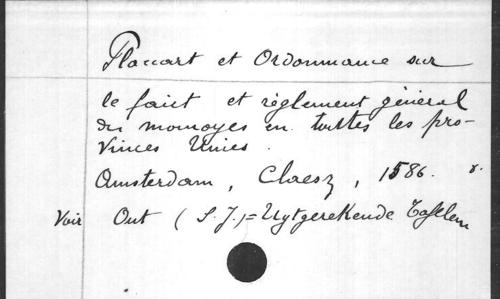 Placcart et Ordonnance sur
le faict et règlement général
du monnoyes en touttes les pro-
vinces Unies.
Amsterdam, Claesz, 1586. 8.
Voir Out (S. J.) = Uytgerekende Taffelen